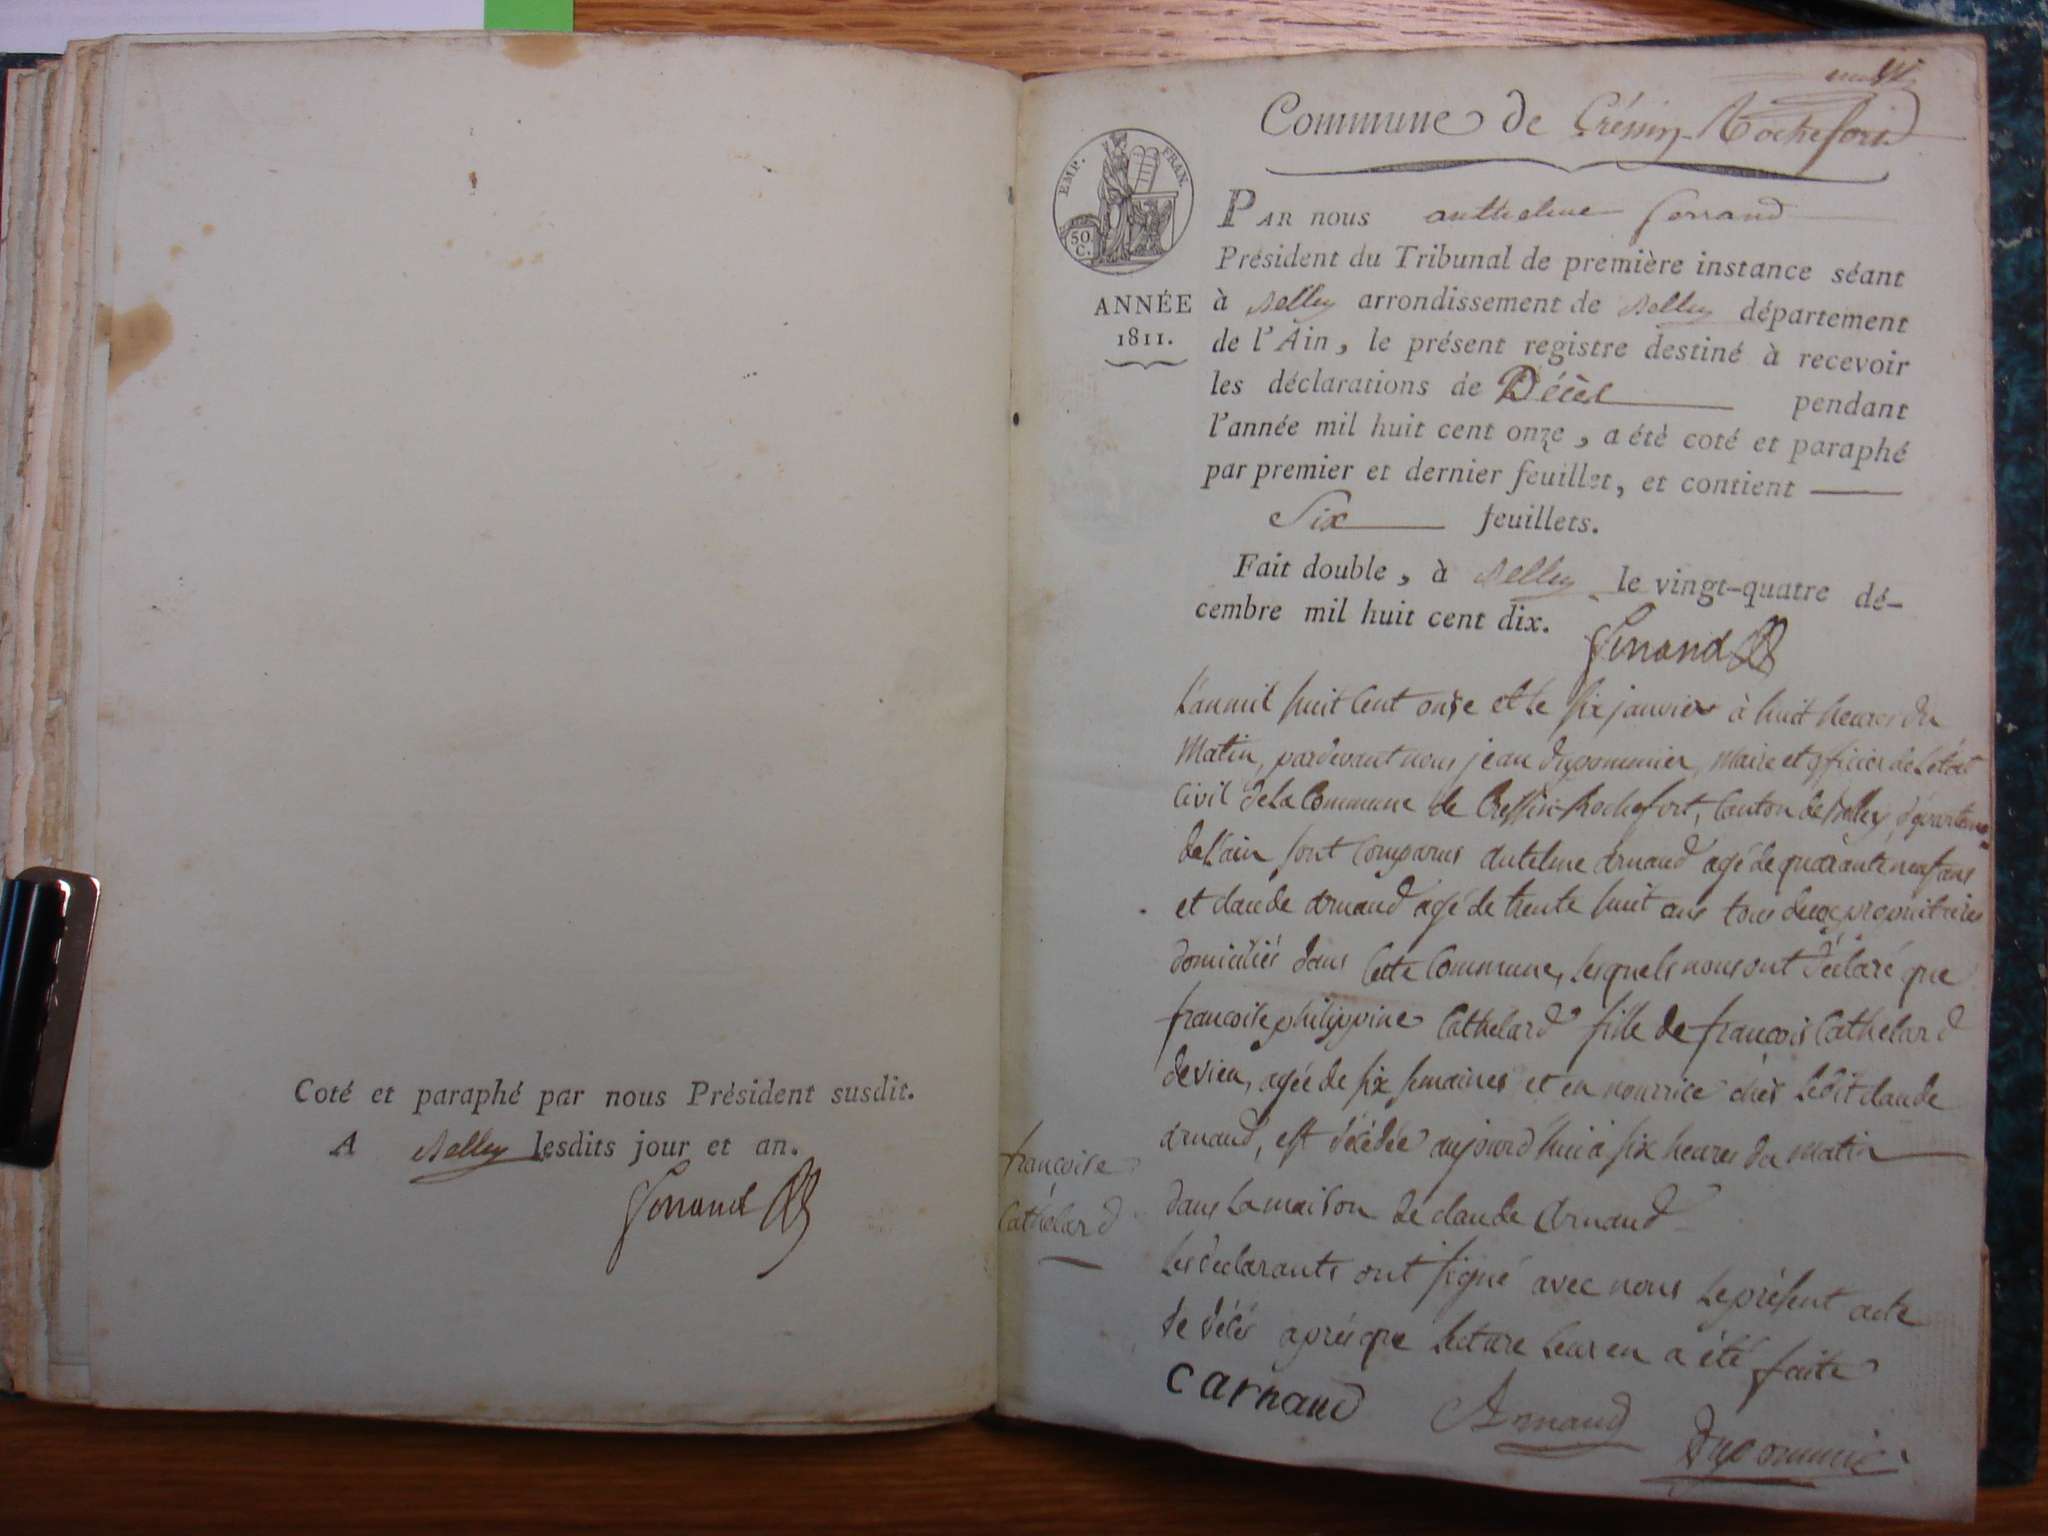 Coté et paraphé par nous Président susdit.
A Belley lesdits jour et an.
Ferrand
Commune de Créssin-Rochefort
EMP. FRAN.
50 C.
ANNÉE
1811.
PAR nous anthelme Ferrand
Président du Tribunal de première instance séant
à Belley arrondissement de Belley département
de l'Ain, le présent registre destiné à recevoir
les déclarations de Décès pendant
l'année mil huit cent onze, a été coté et paraphé
par premier et dernier feuillet, et contient
Six feuillets.
Fait double, à Belley le vingt-quatre dé-
cembre mil huit cent dix.
Ferrand
L'an mil huit Cent onze et le six janvier à huit heures du
Matin, pardevant nous jean Dupommier, Maire et officier de L'état
Civil de La Commune de Cressin-Rochefort, Canton de Belley, départem
de l'ain sont Comparus antelme Arnaud agé de quarante neuf ans
et claude Arnaud agé de trente huit ans tous deux propriétaires
domiciliés dans Cette Commune, Lesquels nous ont déclaré que
francoise philippine Cathelard fille de francois Cathelard
de vieu, agée de six semaines et en nourrice chés Ledit claude
arnaud, est décédée aujourd'hui à six heures du matin
dans La maison de claude Arnaud
Les déclarants ont signé avec nous Le présent acte
de décès après que Lecture Leur en a été faite
francoise
Cathelard
Carnaud Arnaud Dupommier